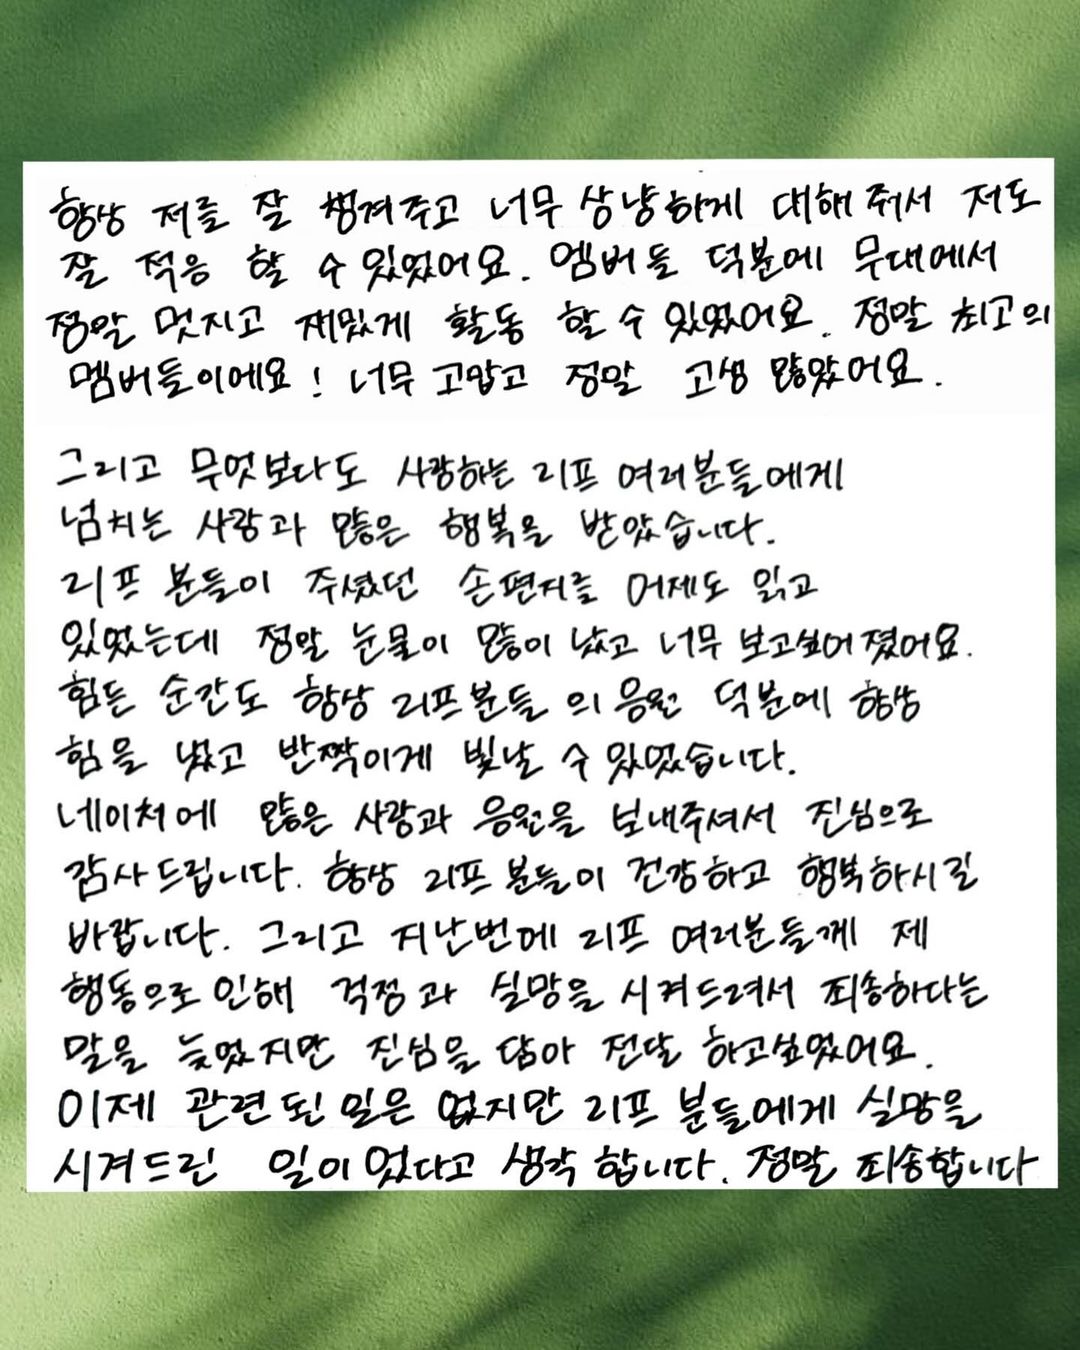 항상 저를 잘 챙겨주고 너무 상냥하게 대해줘서 저도
잘 적응 할 수 있었어요. 멤버들 덕분에 무대에서
정말 멋지고 재밌게 활동 할 수 있었어요. 정말 최고의
멤버들이에요! 너무 고맙고 정말 고생 많았어요.
그리고 무엇보다도 사랑하는 리프 여러분들에게
넘치는 사랑과 많은 행복을 받았습니다.
리프 분들이 주셨던 손편지를 어제도 읽고
있었는데 정말 눈물이 많이 났고 너무 보고싶어졌어요.
힘든 순간도 항상 리프분들의 응원 덕분에 항상
힘을 냈고 반짝이게 빛날 수 있었습니다.
네이처에 많은 사랑과 응원을 보내주셔서 진심으로
감사드립니다. 항상 리프 분들이 건강하고 행복하시길
바랍니다. 그리고 지난번에 리프 여러분들께 제
행동으로 인해 걱정과 실망을 시켜드려서 죄송하다는
말을 늦었지만 진심을 담아 전달 하고싶었어요.
이제 관련된 일은 없지만 리프 분들에게 실망을
시켜드린 일이 었다고 생각 합니다. 정말 죄송합니다